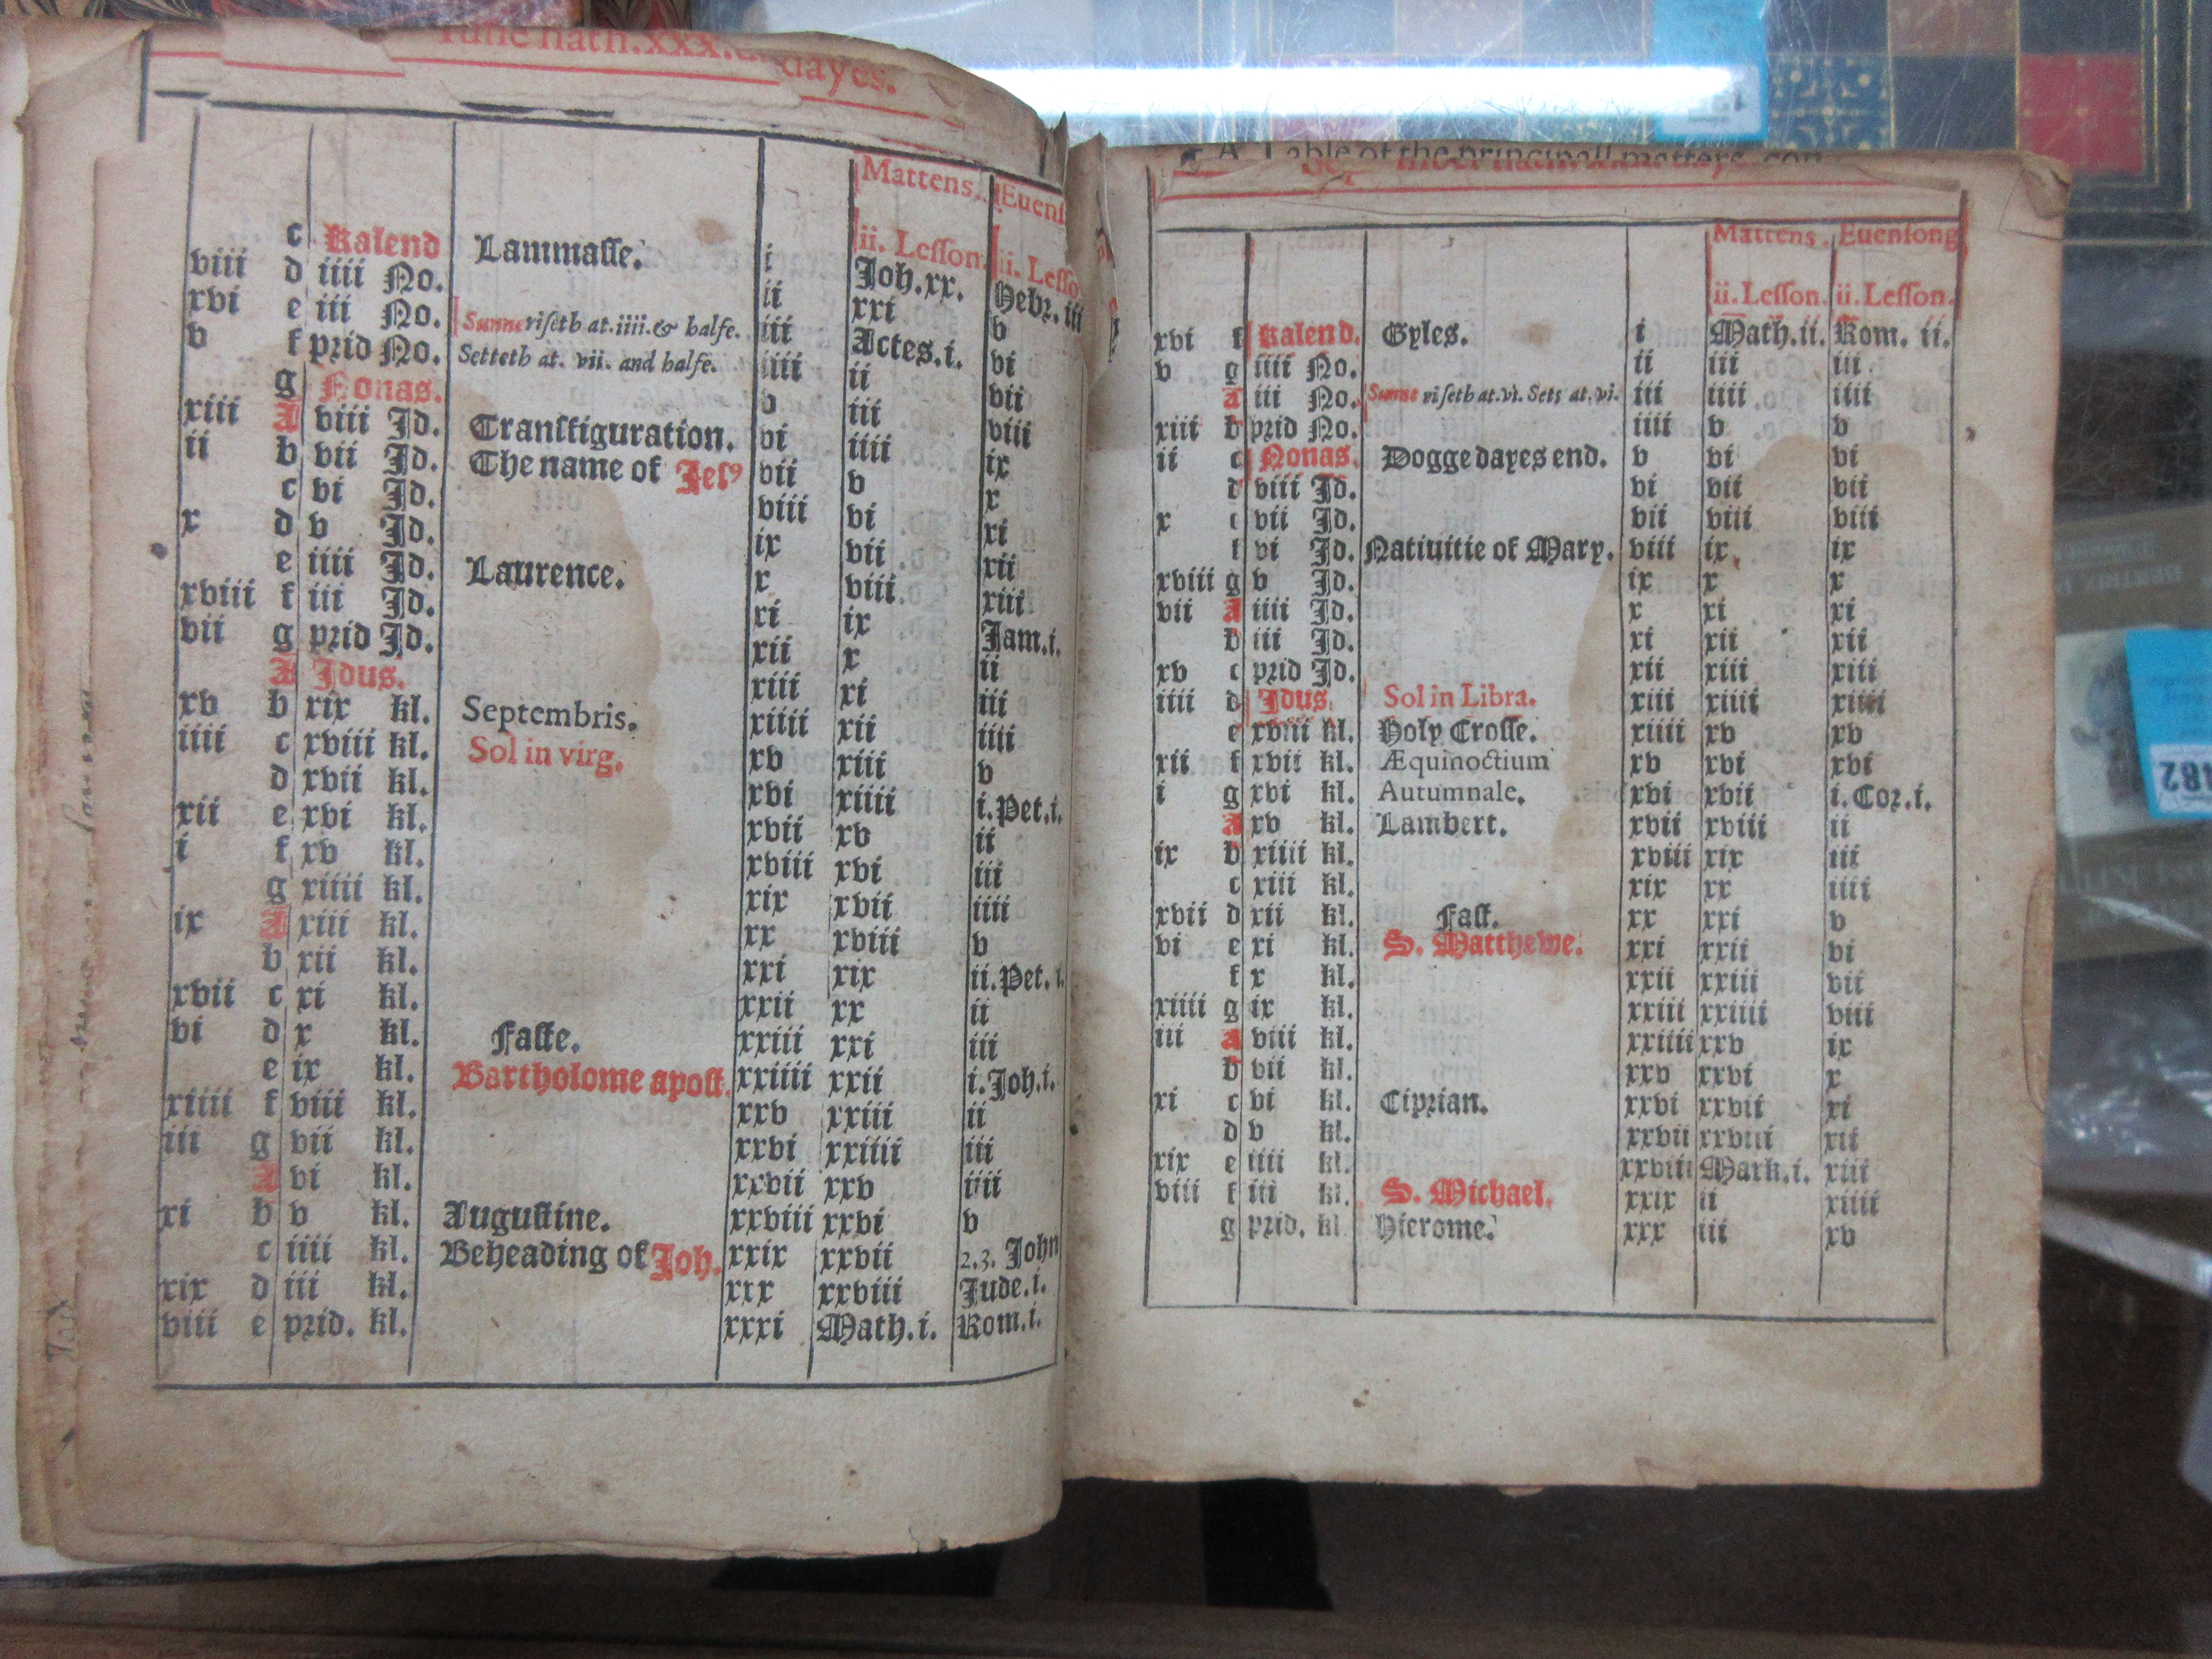 dayes.
Mattens. Euens
ii. Lesson. ii. Lesso
c Kalend Lammasse. i Joh.xx. Hebr.iii
viii d iiii No. ii xxi v
xvi e iii No. Sunne riseth at.iiii.& halfe. iii Actes.i. vi
v f prid No. Setteth at. vii. and halfe. iiii ii vii
g Nonas. v iii viii
xiii A viii Id. Transfiguration. vi iiii ix
ii b vii Id. The name of Jesꝰ vii v x
c vi Id. viii vi xi
x d v Id. ix vii xii
e iiii Id. Laurence. x viii xiii
xviii f iii Id. xi ix Jam.i.
vii g prid Id. xii x ii
A Idus. xiii xi iii
xv b xix kl. Septembris. xiiii xii iiii
iiii c xviii kl. Sol in virg. xv xiii v
d xvii kl. xvi xiiii i.Pet.i.
xii e xvi kl. xvii xv ii
i f xv kl. xviii xvi iii
g xiiii kl. xix xvii iiii
ix A xiii kl. xx xviii v
b xii kl. xxi xix ii.Pet.i.
xvii c xi kl. xxii xx ii
vi d x kl. Faste. xxiii xxi iii
e ix kl. Bartholome apost. xxiiii xxii i.Joh.i.
xiiii f viii kl. xxv xxiii ii
iii g vii kl. xxvi xxiiii iii
A vi kl. xxvii xxv iiii
xi b v kl. Augustine. xxviii xxvi v
c iiii kl. Beheading of Joh. xxix xxvii 2.3. John
xix d iii kl. xxx xxviii Jude.i.
viii e prid. kl. xxxi Math.i. Rom.i.
A Table of the principall matters
Mattens. Euensong
ii. Lesson. ii. Lesson.
xvi f Kalend. Gyles. i Math.ii. Rom. ii.
v g iiii No. ii iii iii
A iii No. Sunne riseth at.vi. Sets at.vi. iii iiii iiii
xiii b prid No. iiii v v
ii c Nonas. Dogge dayes end. v vi vi
d viii Id. vi vii vii
x e vii Id. vii viii viii
f vi Id. Natiuitie of Mary. viii ix ix
xviii g v Id. ix x x
vii A iiii Id. x xi xi
b iii Id. xi xii xii
xv c prid Id. xii xiii xiii
iiii d Idus. Sol in Libra. xiii xiiii xiiii
e xviii kl. Holy Crosse. xiiii xv xv
xii f xvii kl. Æquinoctium xv xvi xvi
i g xvi kl. Autumnale. xvi xvii i.Cor.i.
A xv kl. Lambert. xvii xviii ii
ix b xiiii kl. xviii xix iii
c xiii kl. xix xx iiii
xvii d xii kl. Fast. xx xxi v
vi e xi kl. S. Matthewe. xxi xxii vi
f x kl. xxii xxiii vii
xiiii g ix kl. xxiii xxiiii viii
iii A viii kl. xxiiii xxv ix
b vii kl. xxv xxvi x
xi c vi kl. Ciprian. xxvi xxvii xi
d v kl. xxvii xxviii xii
xix e iiii kl. xxviii Mark.i. xiii
viii f iii kl. S. Michael. xxix ii xiiii
g prid. kl Hierome. xxx iii xv
482